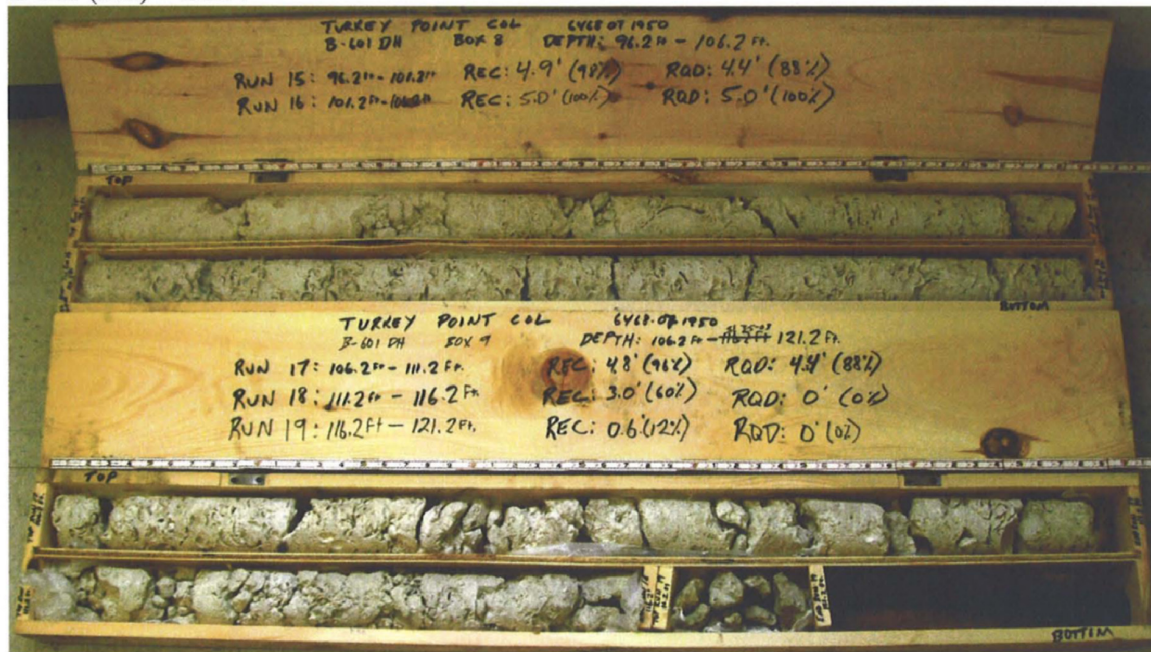 TURKEY POINT COL 6468071950
B-601 DH BOX 8 DEPTH: 96.2 ft - 106.2 Ft.
RUN 15: 96.2ft - 101.2ft REC: 4.9' (98%) RQD: 4.4' (88%)
RUN 16: 101.2ft - 106.2ft REC: 5.0' (100%) RQD: 5.0' (100%)
TOP
BOTTOM
TURKEY POINT COL 6468-07-1950
B-601 DH BOX 9 DEPTH: 106.2 Ft - 116.2 Ft 121.2 Ft.
RUN 17: 106.2Ft - 111.2 Ft. REC: 4.8' (96%) RQD: 4.4' (88%)
RUN 18: 111.2Ft - 116.2 Ft. REC: 3.0' (60%) RQD: 0' (0%)
RUN 19: 116.2Ft - 121.2 Ft. REC: 0.6' (12%) RQD: 0' (0%)
TOP
BOTTOM